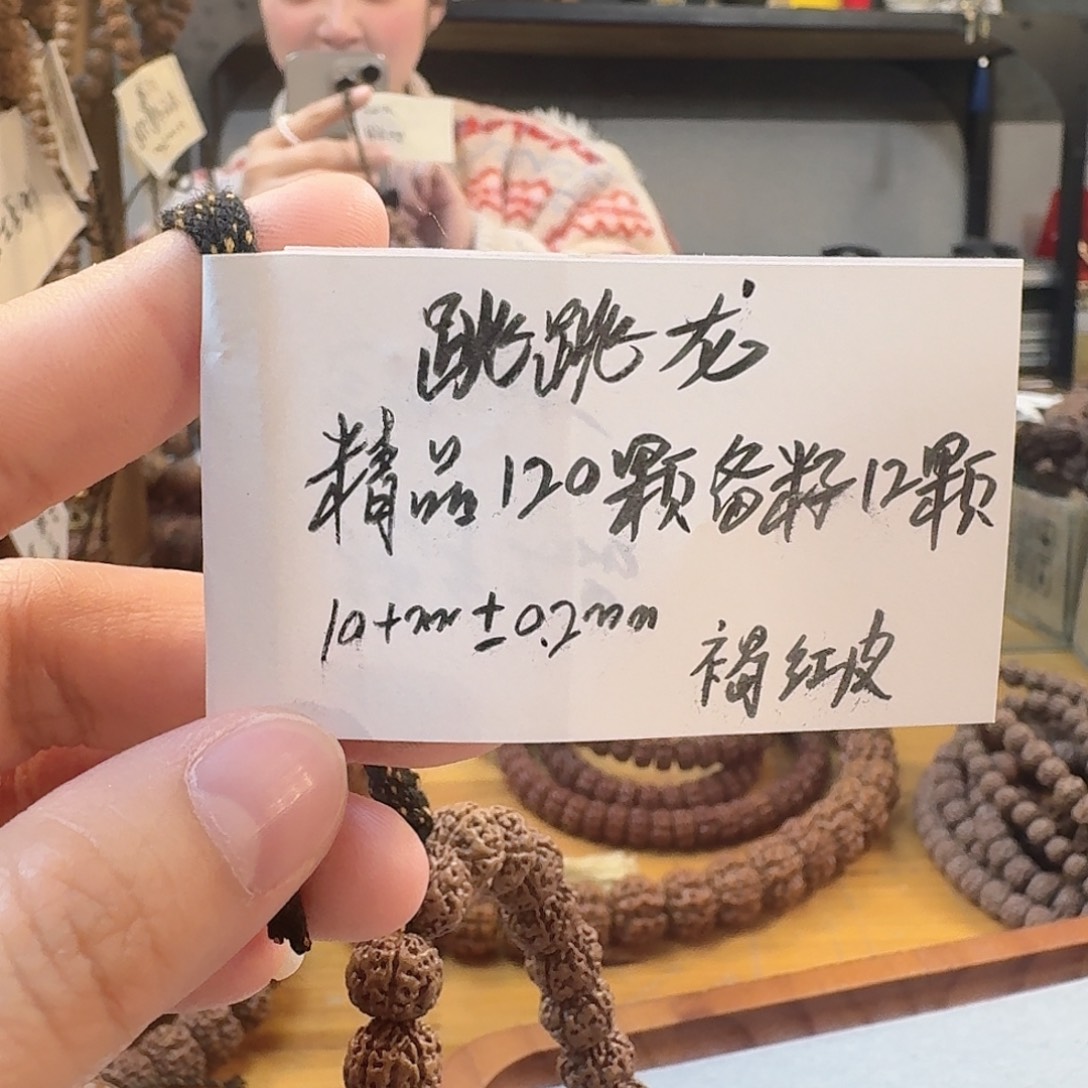 跳跳龙
精品120颗备籽12颗
10+mm±0.2mm
褐红皮